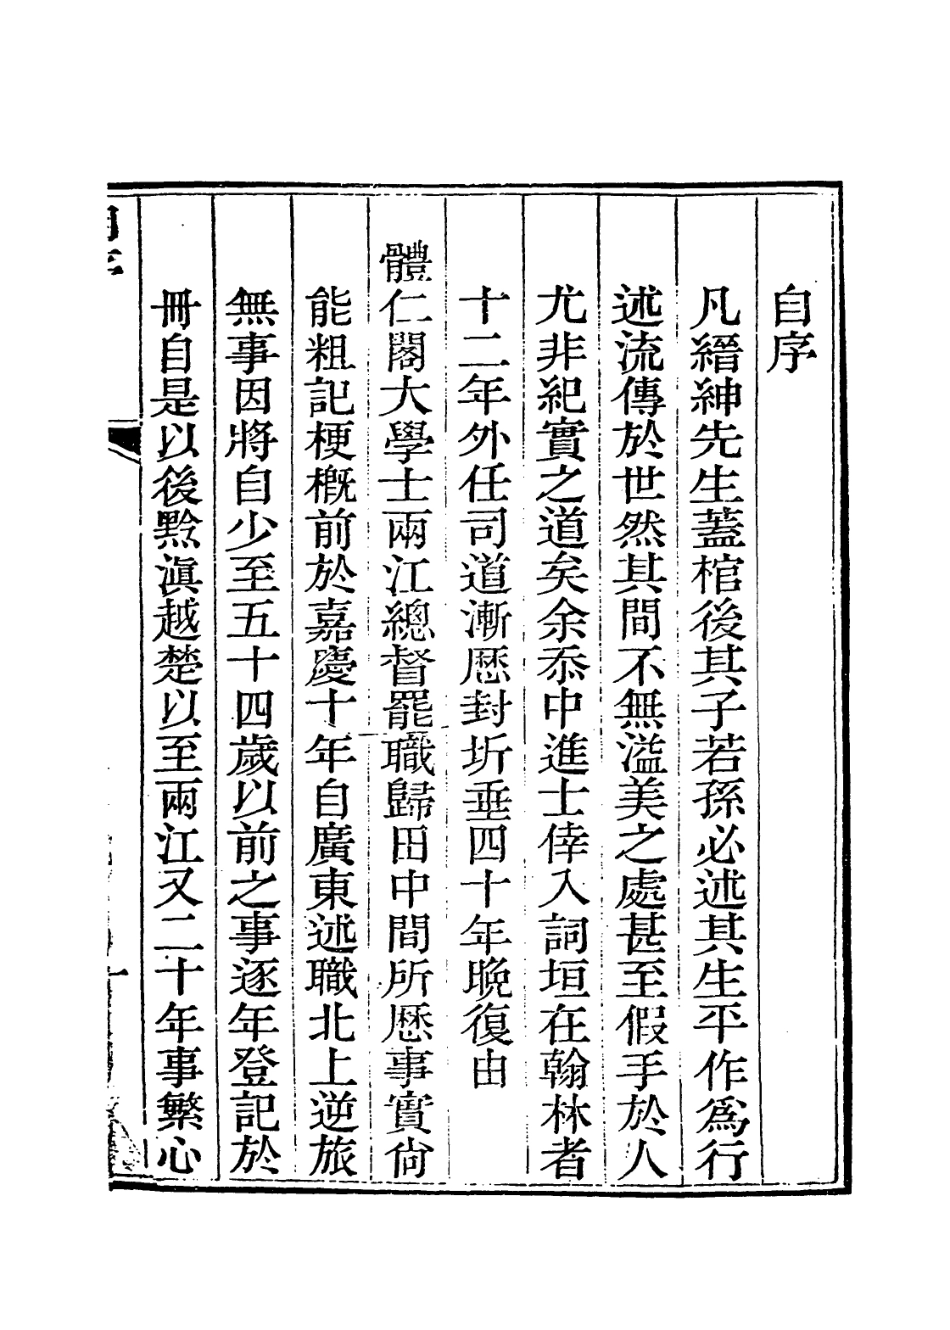 自序
凡縉紳先生蓋棺後其子若孫必述其生平作爲行
述流傳於世然其間不無溢美之處甚至假手於人
尤非紀實之道矣余忝中進士倖入詞垣在翰林者
十二年外任司道漸歷封圻垂四十年晚復由
體仁閣大學士兩江總督罷職歸田中間所歷事實尙
能粗記梗槪前於嘉慶十年自廣東述職北上逆旅
無事因將自少至五十四歲以前之事逐年登記於
冊自是以後黔滇越楚以至兩江又二十年事繁心